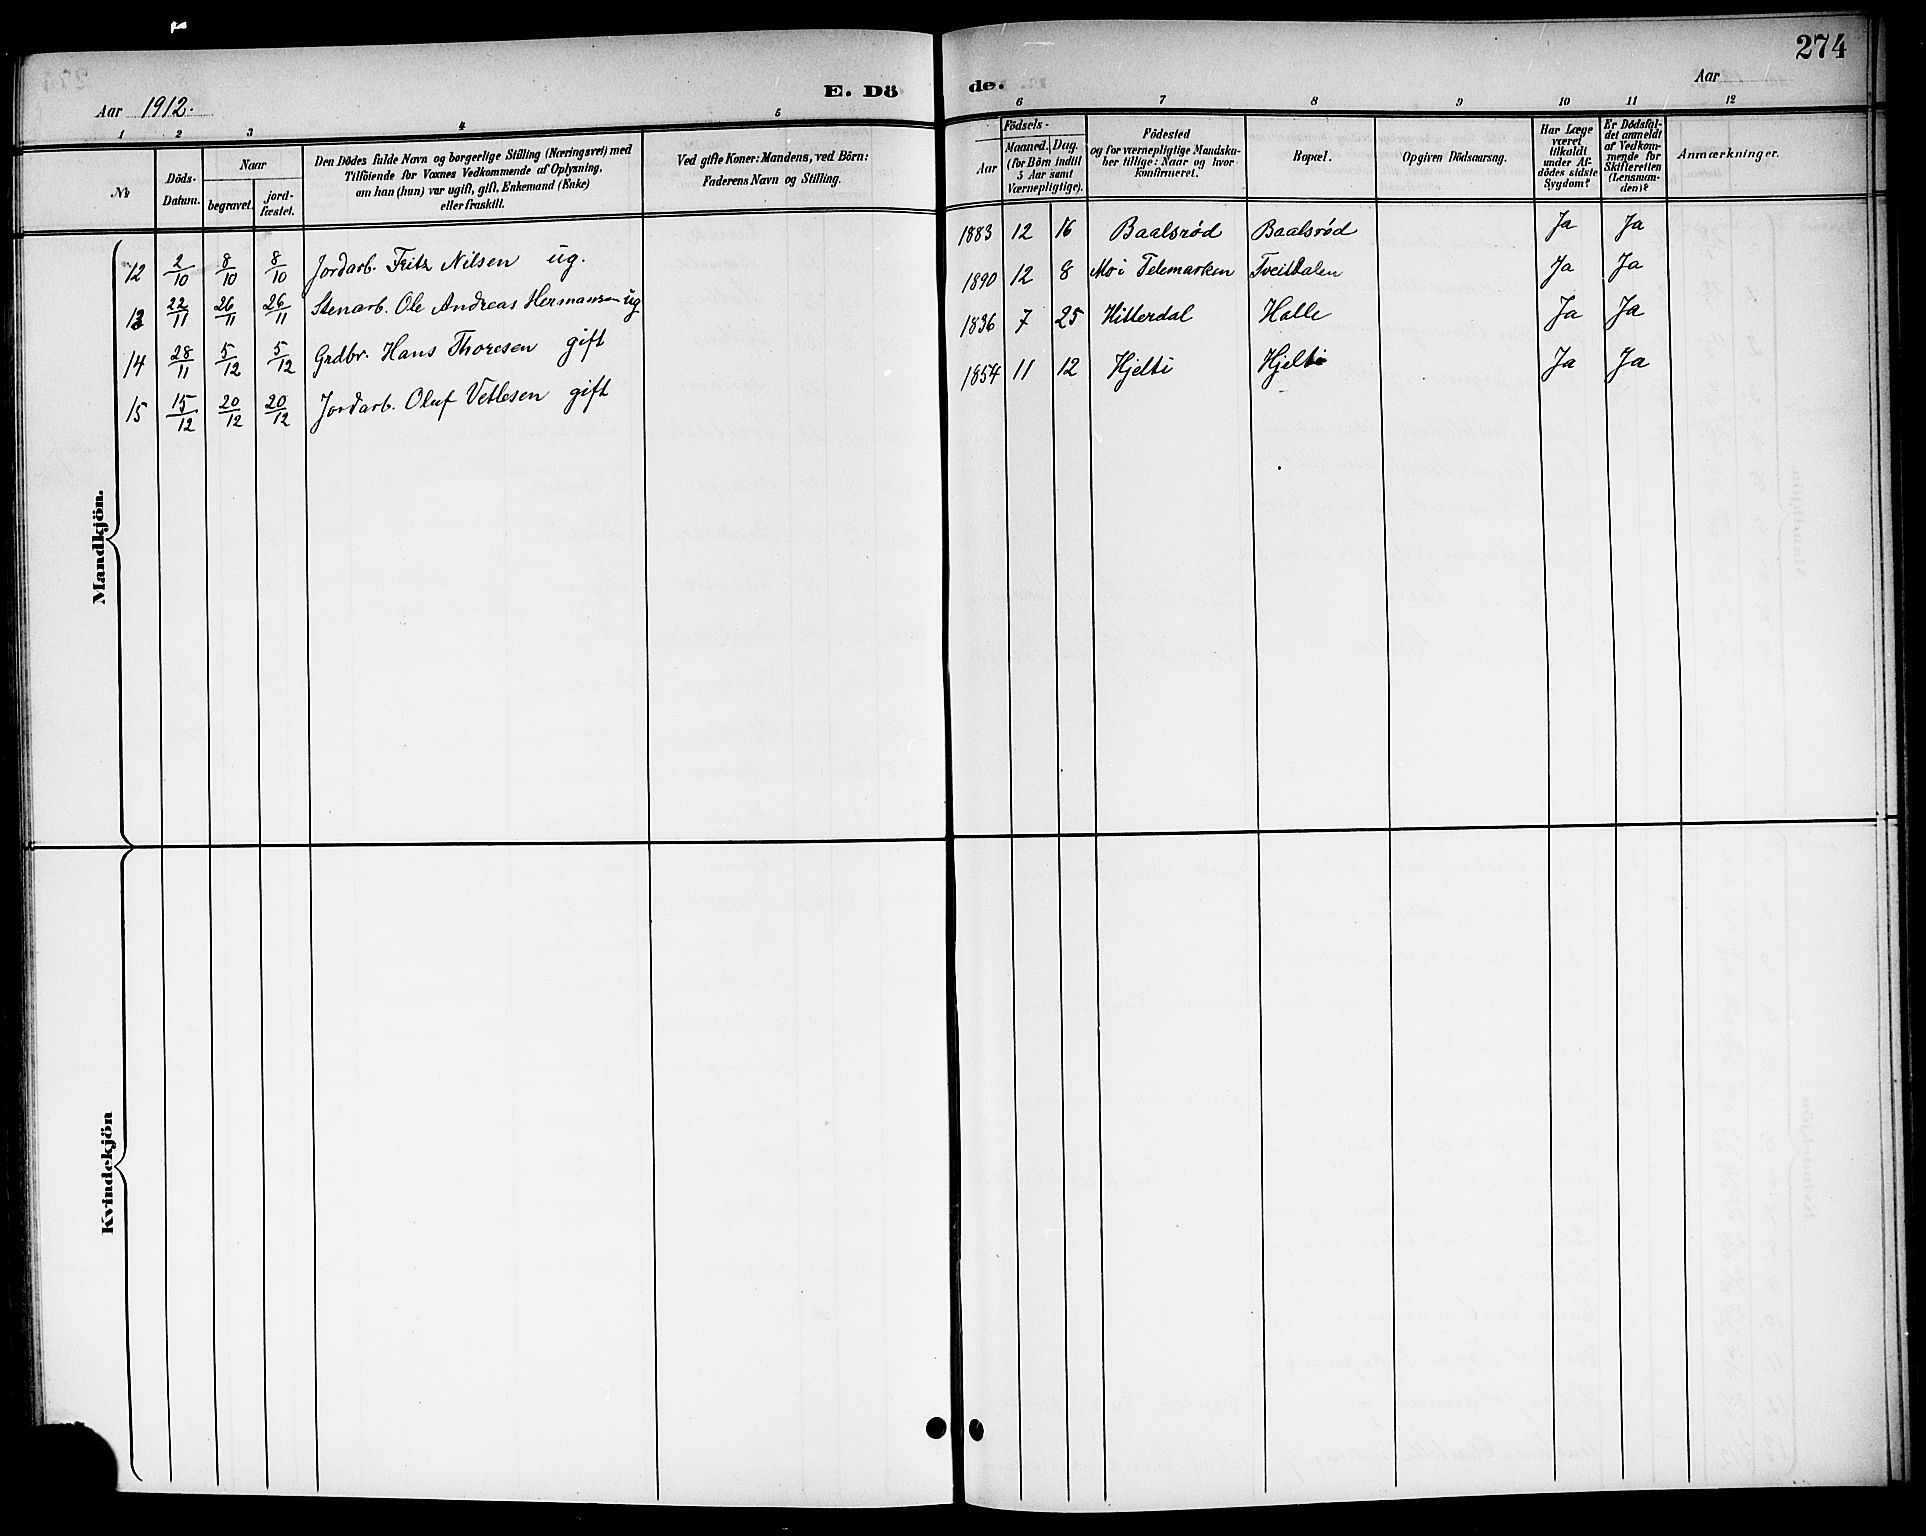 274
Aar 1912.
E. Dö
de.
Aar
1 2 3 4 5 6 7 8 9 10 11 12
№
Döds-
Datum.
Naar
begravet.
jord-
fæstet.
Den Dödes fulde Navn og borgerlige Stilling (Næringsvei) med
Tilföiende for Voxnes Vedkommende af Oplysning,
om han (hun) var ugift, gift, Enkemand (Enke)
eller fraskilt.
Ved gifte Koner: Mandens, ved Börn:
Faderens Navn og Stilling.
Födsels-
Aar
Maaned. Dag.
(for Börn indtil
5 Aar samt
Værnepligtige).
Födested
og for værnepligtige Mandska-
ber tillige: Naar og hvor
konfirmeret.
Bopæl.
Opgiven Dödsaarsag.
Har Læge
været
tilkaldt
under Af-
dödes sidste
Sygdom?
Er Dödsfal-
det anmeldt
af Vedkom-
mende for
Skifteretten
(Lensman-
den)?
Anmærkninger.
Mandkjön.
12 2/10 8/10 8/10 Jordarb. Fritz Nilsen ug. 1883 12 16 Baalsrød Baalsrød Ja Ja
13 22/11 26/11 26/11 Stenarb. Ole Andreas Hermansen ug 1890 12 8 Mo i Telemarken Tveitdalen Ja Ja
14 28/11 5/12 5/12 Grdbr. Hans Thoresen gift 1836 7 25 Hitterdal Halle Ja Ja
15 15/12 20/12 20/12 Jordarb. Oluf Vetlesen gift 1854 11 12 Hjelti Hjelti Ja Ja
Kvindekjön